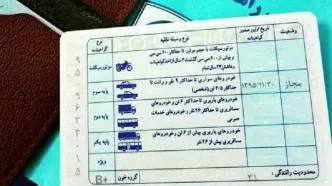 وضعیت
تاریخ اولین صدور گواهینامه
نوع وسیله نقلیه
نوع گواهینامه
موتورسیکلت با حجم موتور تا حداکثر ۲۰۰ سی سی
و بیش از ۲۰۰ سی سی
موتورسیکلت
خودروهای سواری تا حداکثر ۹ نفر و وانت تا
حداکثر ۳/۵ تن (شخصی)
پایه سوم
مجاز
۱۳۹۵/۱۱/۳۰
خودروهای باربری تا حداکثر ۶ تن و خودروهای
مسافربری تا حداکثر ۲۶ نفر و خودروهای خدمات
عمومی
پایه دوم
خودروهای باربری بیش از ۶ تن و خودروهای
مسافربری بیش از ۲۶ نفر
پایه یکم
ویژه
محدودیت رانندگی:
۲۱
گروه خون
B+